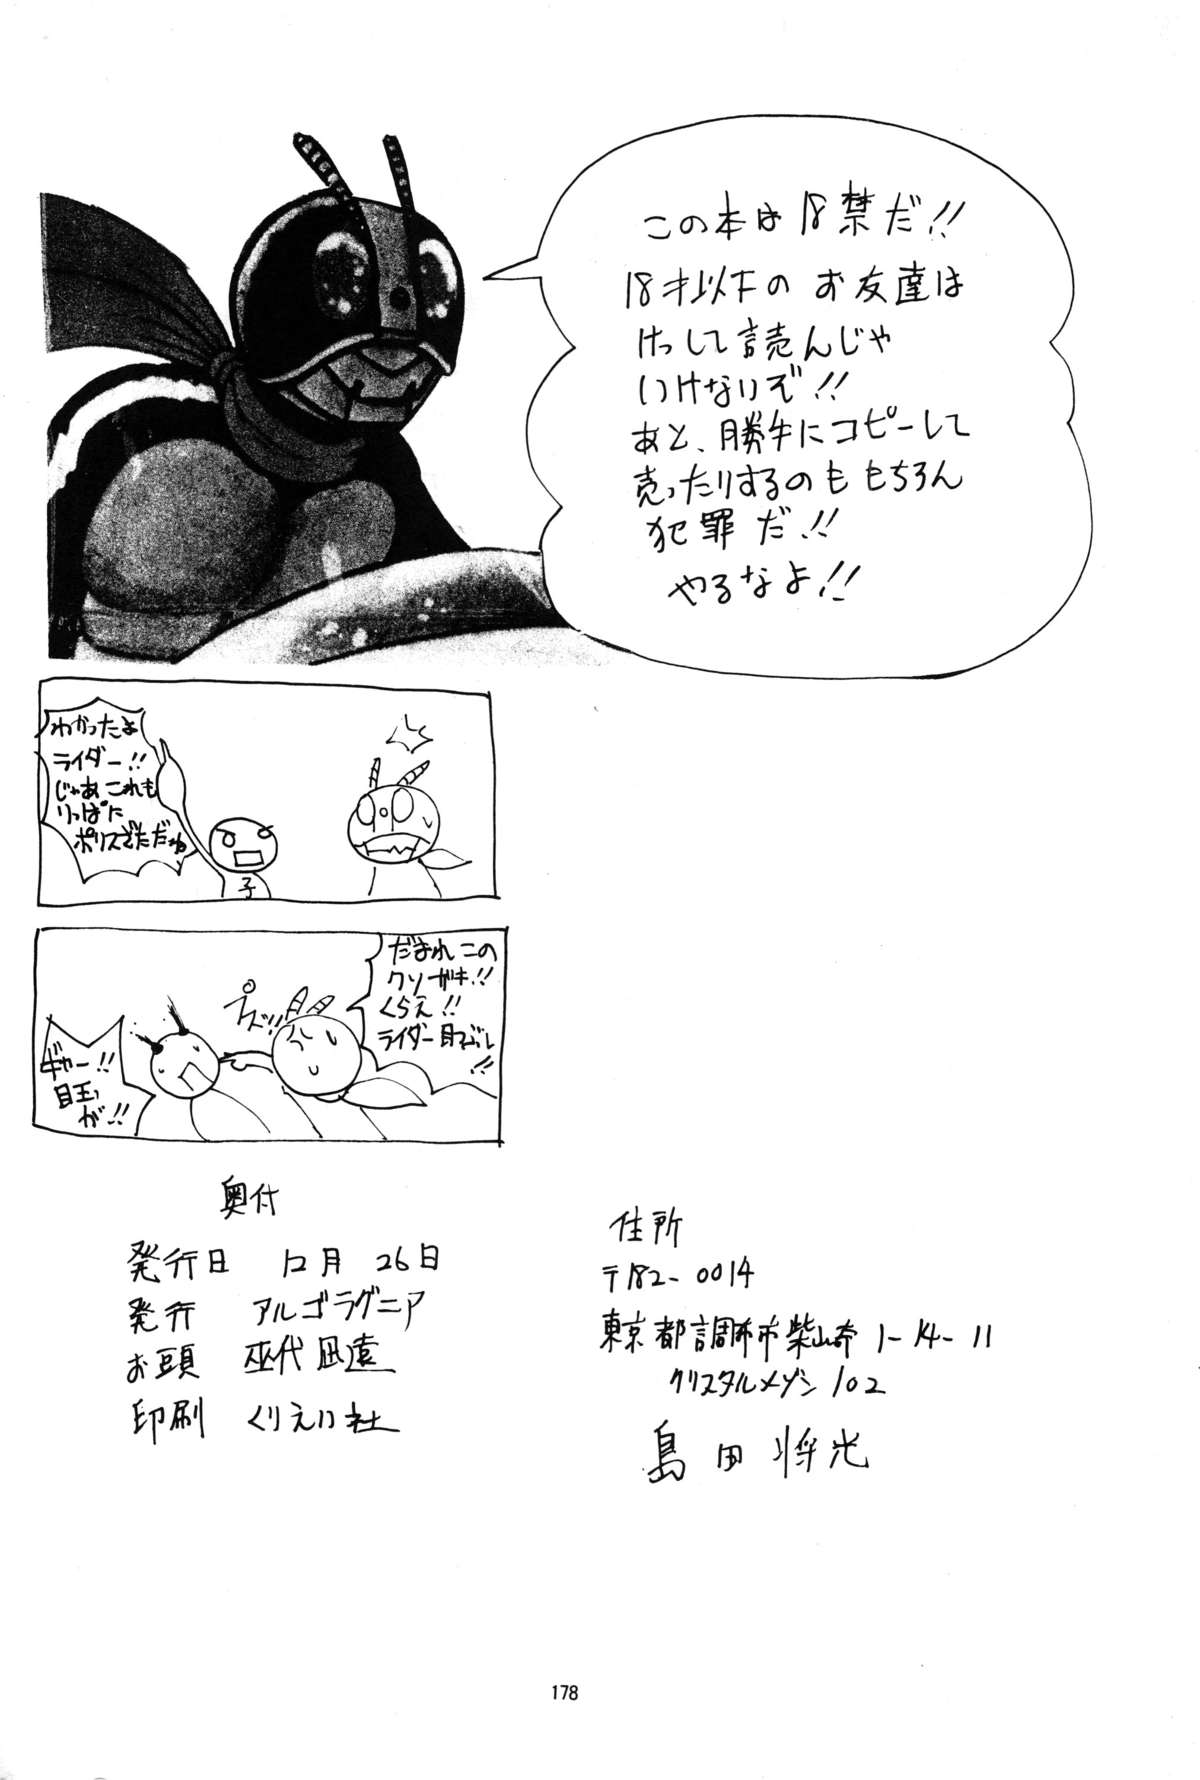 この本は18禁だ!!
18才以下のお友達は
けっして読んじゃ
いけないぞ!!
あと、勝手にコピーして
売ったりするのももちろん
犯罪だ!!
やるなよ!!
わかったよ
ライダー!!
じゃあこれも
りっぱに
ポリスざただね
子
だまれこの
クソガキ!!
くらえ!!
ライダー目つぶし!!
プズ!!
ギャー!!
目玉っ
が!!
奥付
発行日 12月 26日
発行 アルゴラグニア
お頭 巫代凪遠
印刷 くりえい社
住所
〒182-0014
東京都調布市柴崎1-14-11
クリスタルメゾン102
島田将光
178